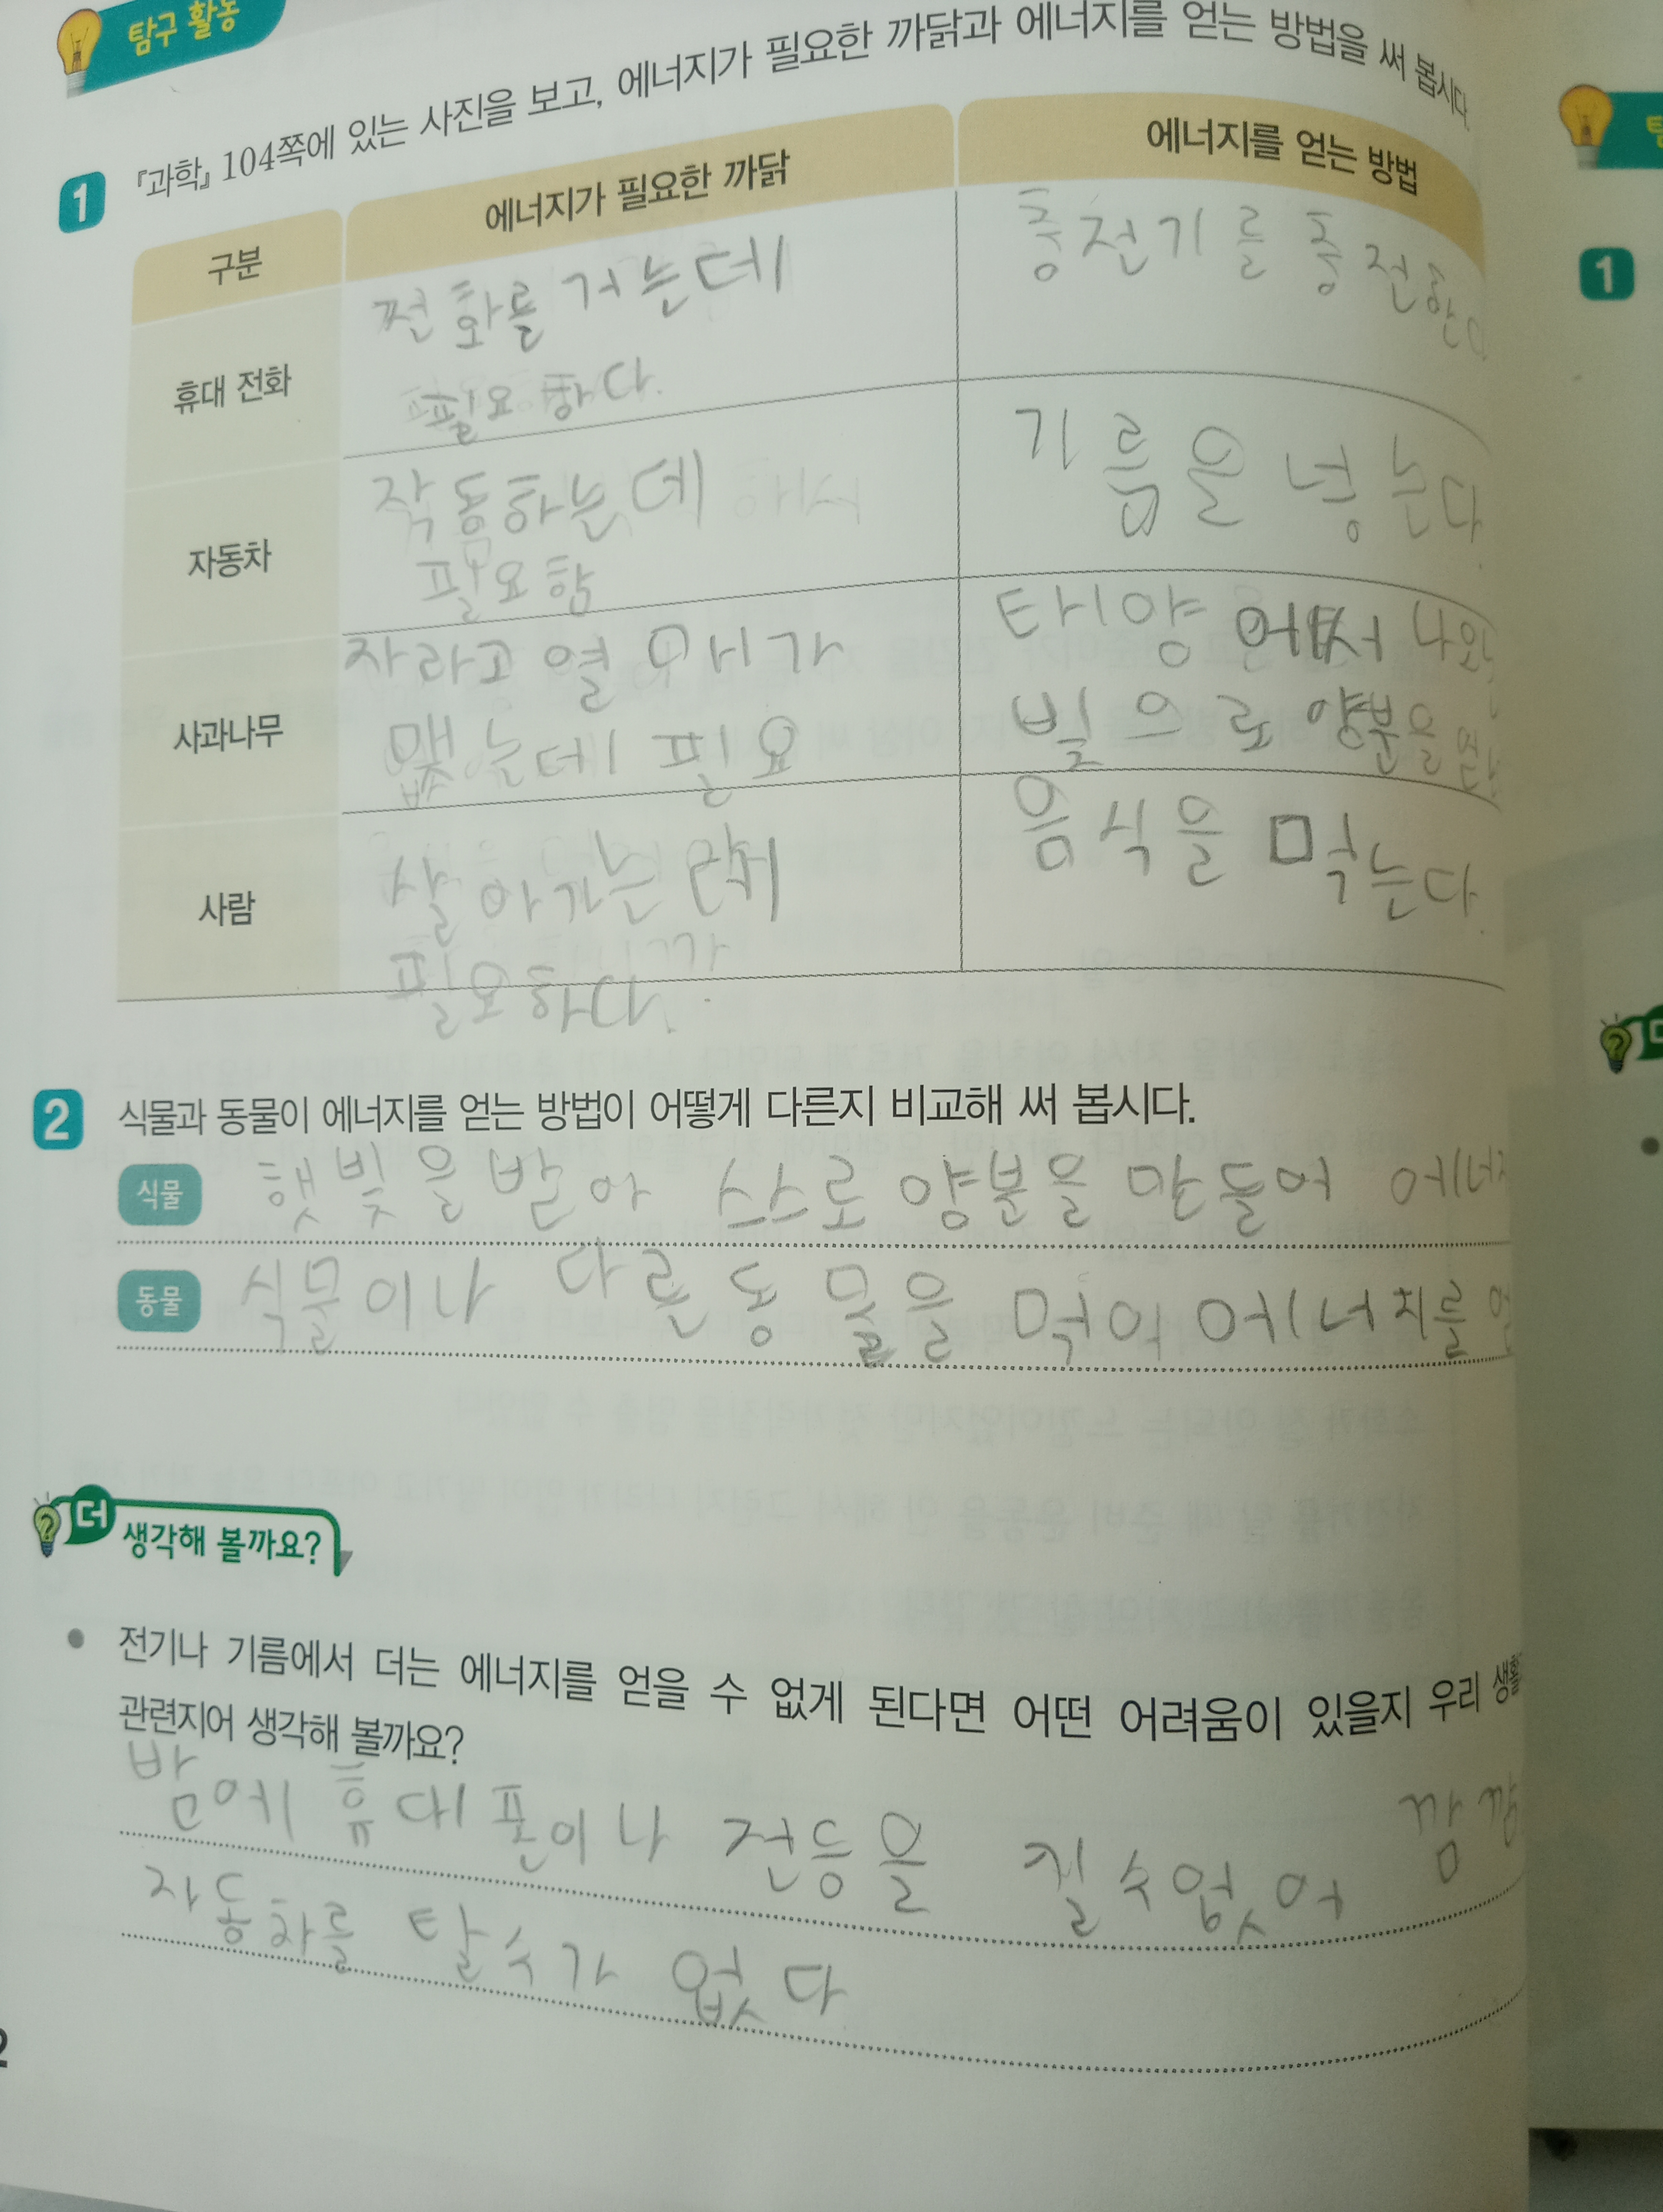 탐구 활동
1 『과학』 104쪽에 있는 사진을 보고, 에너지가 필요한 까닭과 에너지를 얻는 방법을 써 봅시다.
구분 에너지가 필요한 까닭 에너지를 얻는 방법
휴대 전화
전화를 거는데
필요하다.
충전기를 충전한다
자동차
작동하는데
필요함
기름을 넣는다.
사과나무
자라고 열매가
맺는데 필요
태양에서 나와
빛으로 양분을
사람
살아가는데
필요하다.
음식을 먹는다.
2 식물과 동물이 에너지를 얻는 방법이 어떻게 다른지 비교해 써 봅시다.
식물 햇빛을 받아 스스로 양분을 만들어 에너지
동물 식물이나 다른동물을 먹어 에너지를
더 생각해 볼까요?
• 전기나 기름에서 더는 에너지를 얻을 수 없게 된다면 어떤 어려움이 있을지 우리 생활
관련지어 생각해 볼까요?
밤에 휴대폰이나 전등을 킬수없어 깜깜
자동차를 탈수가 없다
1